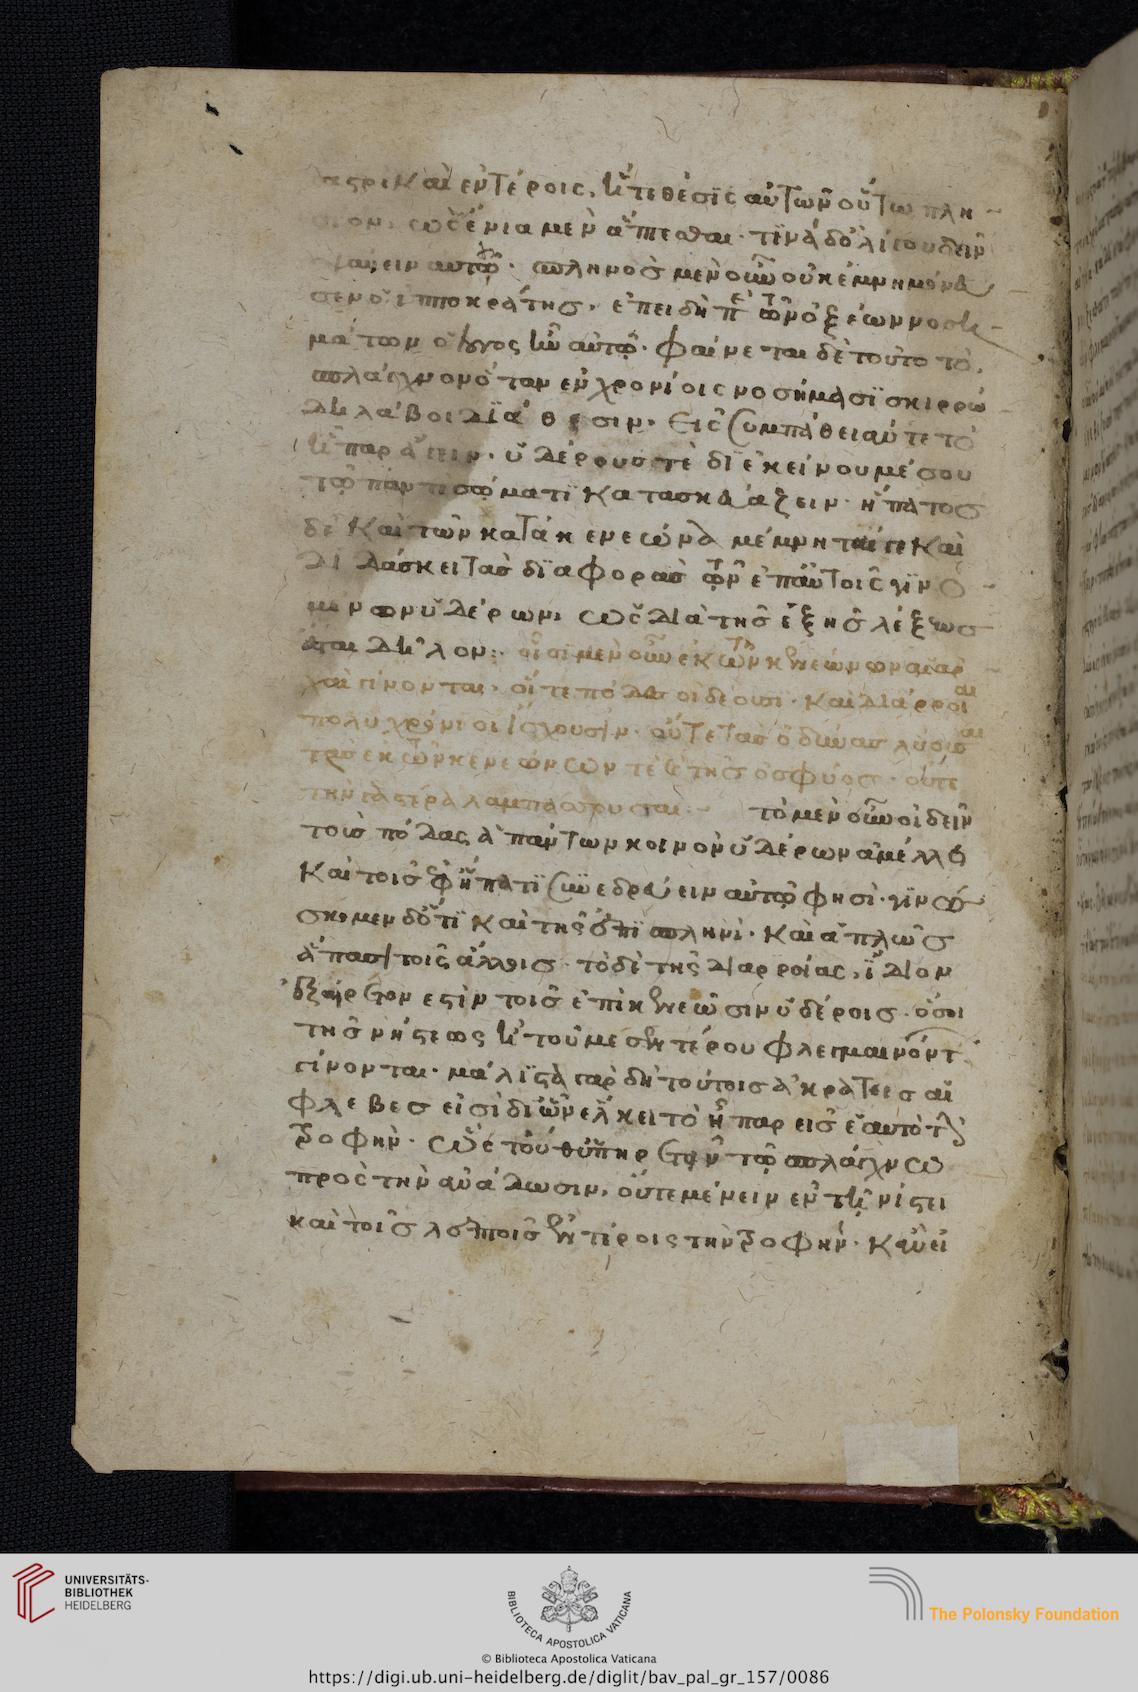 καὶ ἐντέροις, ἥ τε θέσις αὐτῶν οὕτω πλη
σίον, ὡς ἔνια μὲν ἅπτεσθαι· τινὰ δ' ὀλίγου δεῖν
ψαύειν αὐτῶν. σπληνὸς μὲν οὖν οὐκ ἐμνημόνευ
σεν ὁ ἱπποκράτης, ἐπειδὴ περὶ τῶν ὀξέων νοση
μάτων ὁ λόγος ἦν αὐτῷ. φαίνεται δὲ τοῦτο τὸ
σπλάγχνον ὅταν ἐν χρονίοις νοσήμασι σκιρρώ
δη λάβοι διάθεσιν, εἰς συμπάθειαν τε τὸ
ἧπαρ ἄγειν, ὑδέρους τε δι' ἐκείνου μέσου
τῷ παντὶ σώματι κατασκευάζειν. ἥπατος
δὲ καὶ τῶν κατὰ κενεῶνα μέμνηταί τε καὶ
διδάσκει τὰς διαφορὰς τῶν ἐπ' αὐτοῖς γινο
μένων ὑδέρων, ὡς διὰ τῆς ἑξῆς λέξεως
ἔσται δῆλον: οἷσι μὲν οὖν ἐκ τῶν κενεώνων αἱ ἀρ
χαὶ γίνονται, οἵ τε πόδες οἰδέουσι. καὶ διάρροιαι
πολυχρόνιοι ἴσχουσιν, οὔτε τὰς ὀδύνας λύουσαι
τὰς ἐκ τῶν κενεώνων τε καὶ τῆς ὀσφύος. οὔτε
τὴν γαστέρα λαπάσσουσαι: τὸ μὲν οὖν οἰδεῖν
τοὺς πόδας, ἁπάντων κοινὸν ὑδέρων ἀμέλει
καὶ τοῖς ἐφ' ἥπατι συνεδρεύειν αὐτῷ φησι. γινώ
σκομεν δ' ὅτι καὶ τοῖς ἐπὶ σπληνί. καὶ ἁπλῶς
ἅπασι τοῖς ἄλλοις. τὸ δὲ τῆς διαρροίας, ἴδιον
ἐξαίρετον ἐστὶν τοῖς ἐπὶ κενεῶσιν ὑδέροις. ὅσοι
τῆς νήστεως ἢ τοῦ μεσεντέρου φλεγμαινόντων
γίνονται. μάλιστα γὰρ δὴ τούτοις ἀκρατεῖς αἱ
φλέβες εἰσὶ δι' ὧν ἕλκει τὸ ἧπαρ εἰς ἑαυτὸ τὴν
τροφήν.
πρὸς τὴν ἀνάδοσιν, οὔτε μένειν ἐν τῇ νήστει
καὶ τοῖς λεπτοῖς ἐντέροις τὴν τροφήν. κἂν εἰ
UNIVERSITÄTS-
BIBLIOTHEK
HEIDELBERG
BIBLIOTECA APOSTOLICA VATICANA
The Polonsky Foundation
© Biblioteca Apostolica Vaticana
https://digi.ub.uni-heidelberg.de/diglit/bav_pal_gr_157/0086